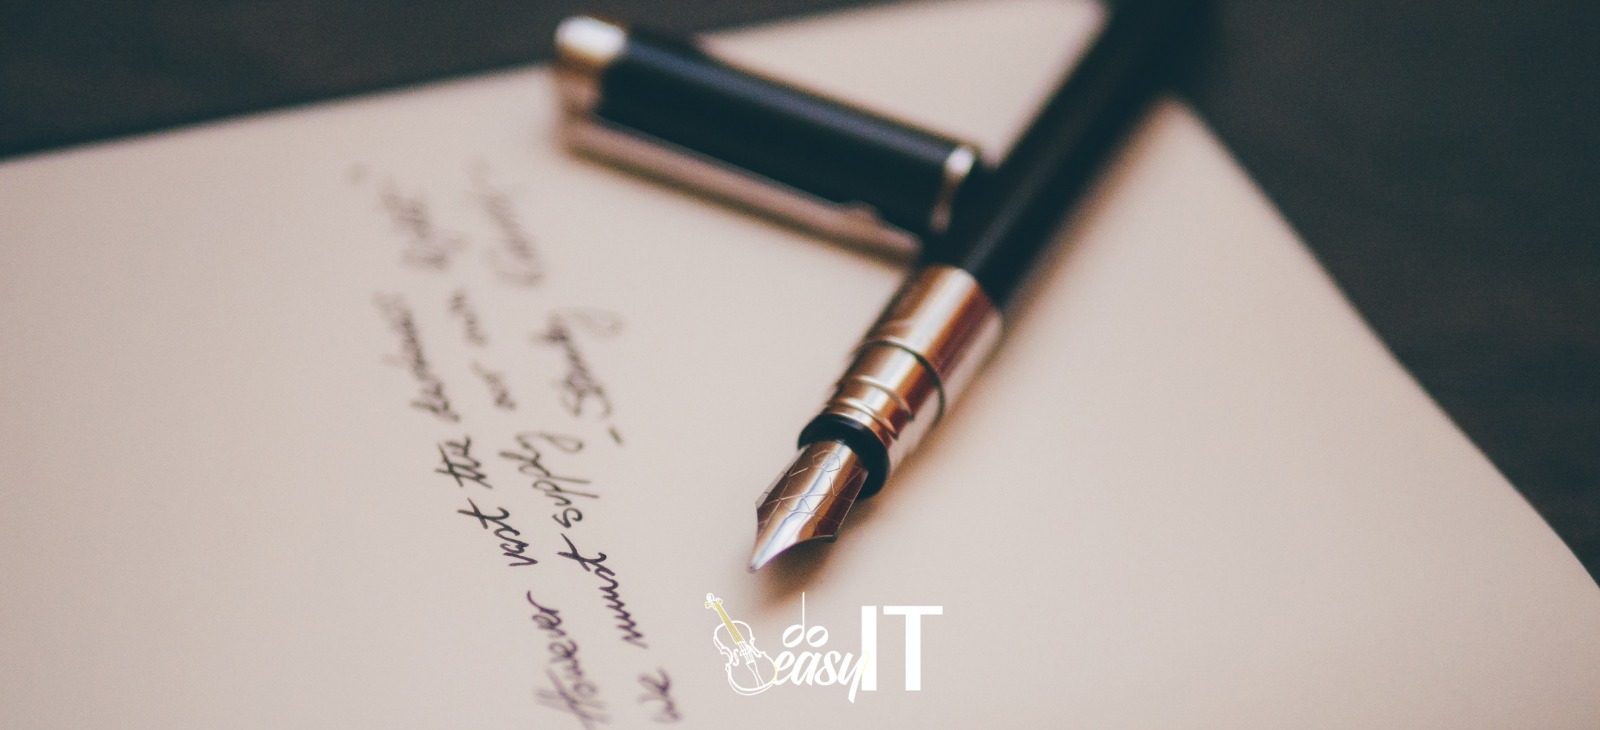 However vast the darkness
we must supply our own
- Stanley
do
easy IT